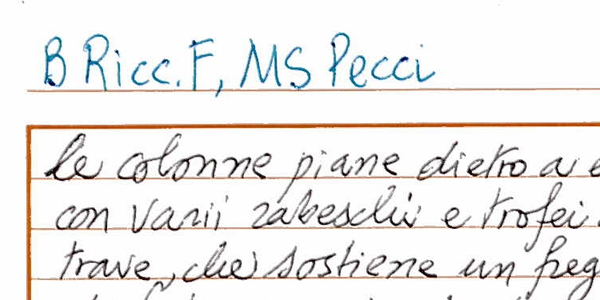 B Ricc. F, MS Pecci
le colonne piane dietro a
con varii rabeschi e trofei
trave, che sostiene un freg